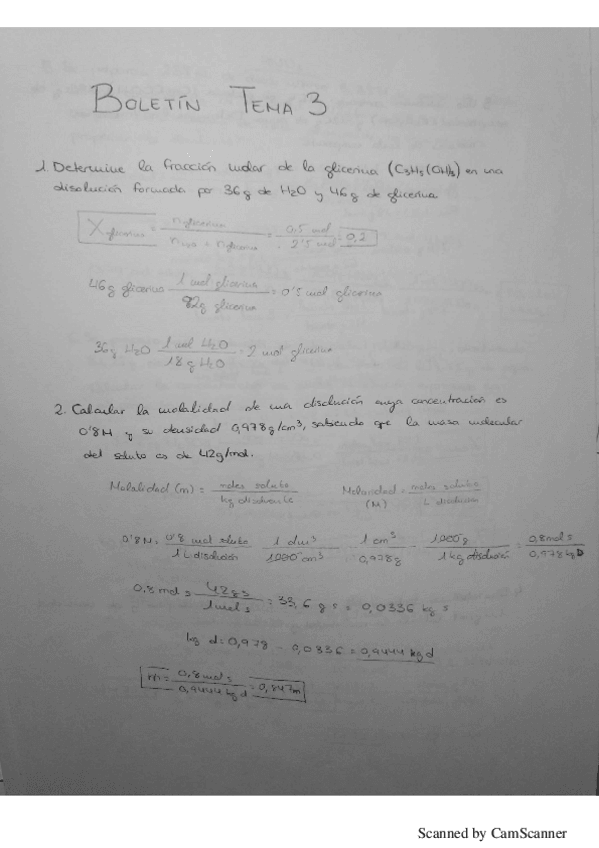 BOLETÍN TEMA 3
1. Determine la fracción molar de la glicerina (C3H5(OH)3) en una
disolución formada por 36g de H2O y 46g de glicerina
Xglicerina = n glicerina / nH2O + n glicerina = 0.5 mol / 2'5 mol = 0,2
46g glicerina 1 mol glicerina / 92g glicerina = 0'5 mol glicerina
36g H2O 1 mol H2O / 18 g H2O = 2 mol glicerina
2. Calcular la molalidad de una disolución cuya concentración es
0'8M y su densidad 0,978g/cm³, sabiendo que la masa molecular
del soluto es de 42g/mol.
Molalidad (m) = moles soluto / kg disolvente Molaridad (M) = moles soluto / L disolución
0'8M = 0'8 mol soluto / 1 L disolución 1 dm³ / 1000 cm³ 1 cm³ / 0,978g 1000g / 1 kg disolución = 0,8 mol s / 0,978 kg D
0.8 mol s 42 g s / 1 mol s = 33,6 g s = 0,0336 kg s
kg d = 0,978 - 0,0336 = 0,9444 kg d
m = 0,8 mol s / 0,9444 kg d = 0,847m
Scanned by CamScanner